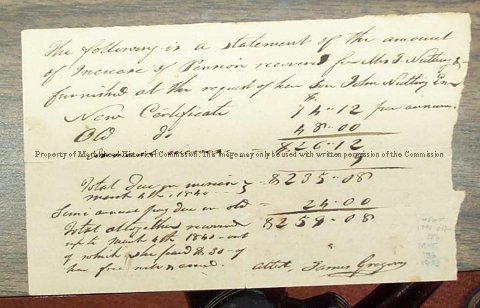 The following is a statement of the amount
of Increase of Pension received for Mrs T. Nutting &
furnished at the request of her Son John Nutting
New Certificate $ 74-12 per annum.
Old do 48-00
$26-12
Property of Marblehead Historical Commission. This image may only be used with written permission of the Commission
9
Total due on
March 4th 1840 $235-08
Semi annual pay due on old = 24-00
Total altogether received $259-08
up to March 4th 1840 - out
of which she paid $ 30- of
her free
attest, James Gregory